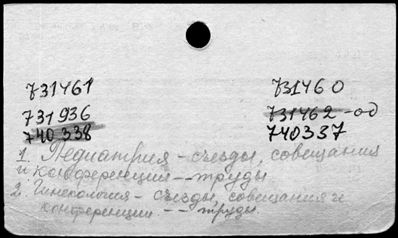 731461 731460
731936 731462-од
740338 740337
1. Педиатрия - съезды, совещания
и конференции -- труды
2. Гинекология - съезды, совещания и
конференции -- труды.